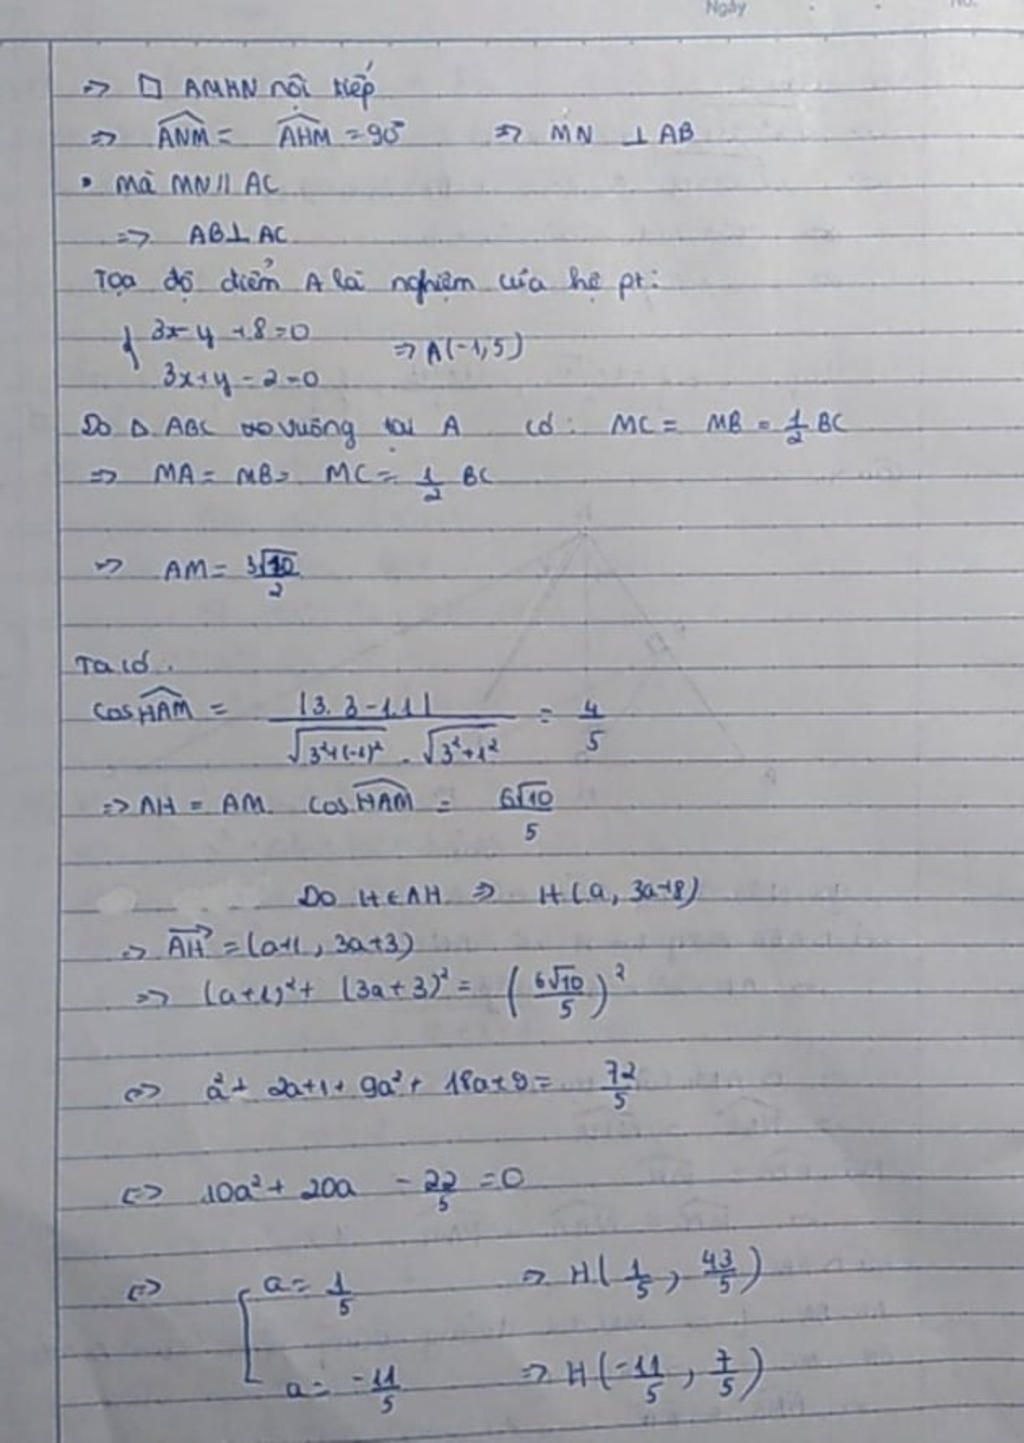 Ngày No.
=> □ AMHN nội tiếp
=> \widehat{ANM} = \widehat{AHM} = 90° => MN ⊥ AB
• mà MN // AC
=> AB ⊥ AC
Tọa độ điểm A là nghiệm của hệ pt:
{ 3x - y + 8 = 0
3x + y - 2 = 0 => A(-1, 5)
Do Δ ABC vuông tại A có: MC = MB = \frac{1}{2} BC
=> MA = MB = MC = \frac{1}{2} BC
=> AM = \frac{3\sqrt{10}}{2}
Ta có.
cos\widehat{HAM} = \frac{|3.3 - 1.1|}{\sqrt{3^2+(-1)^2} . \sqrt{3^2+1^2}} = \frac{4}{5}
=> AH = AM. cos\widehat{HAM} = \frac{6\sqrt{10}}{5}
Do H ∈ AH => H(a, 3a+8)
=> \overrightarrow{AH} = (a+1, 3a+3)
=> (a+1)² + (3a+3)² = (\frac{6\sqrt{10}}{5})²
<=> a² + 2a+1 + 9a² + 18a+9 = \frac{72}{5}
<=> 10a² + 20a - \frac{22}{5} = 0
<=> [ a = \frac{1}{5} => H(\frac{1}{5}, \frac{43}{5})
a = -\frac{11}{5} => H(-\frac{11}{5}, \frac{7}{5})